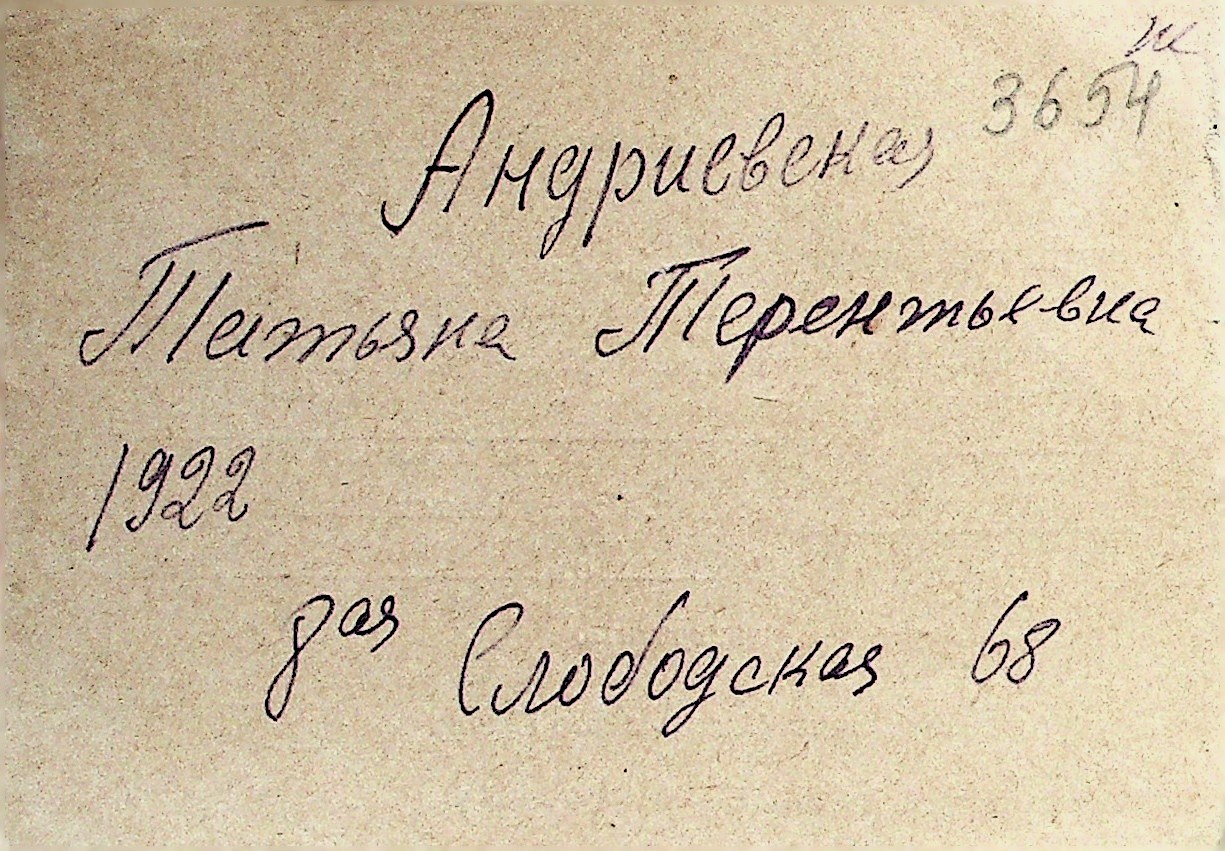 3654
Андриевская
Татьяна Терентьевна
1922
8ая Слободская 68